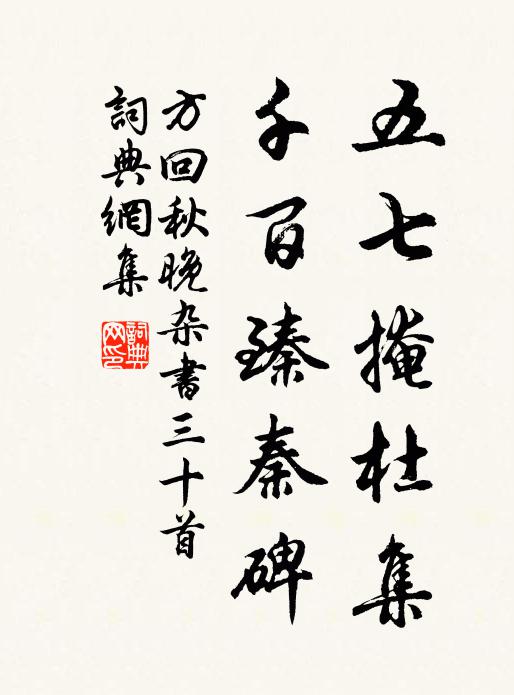 五七掩杜集
千百臻秦碑
方回秋晚杂書三十首
詞典網集
詞典網印